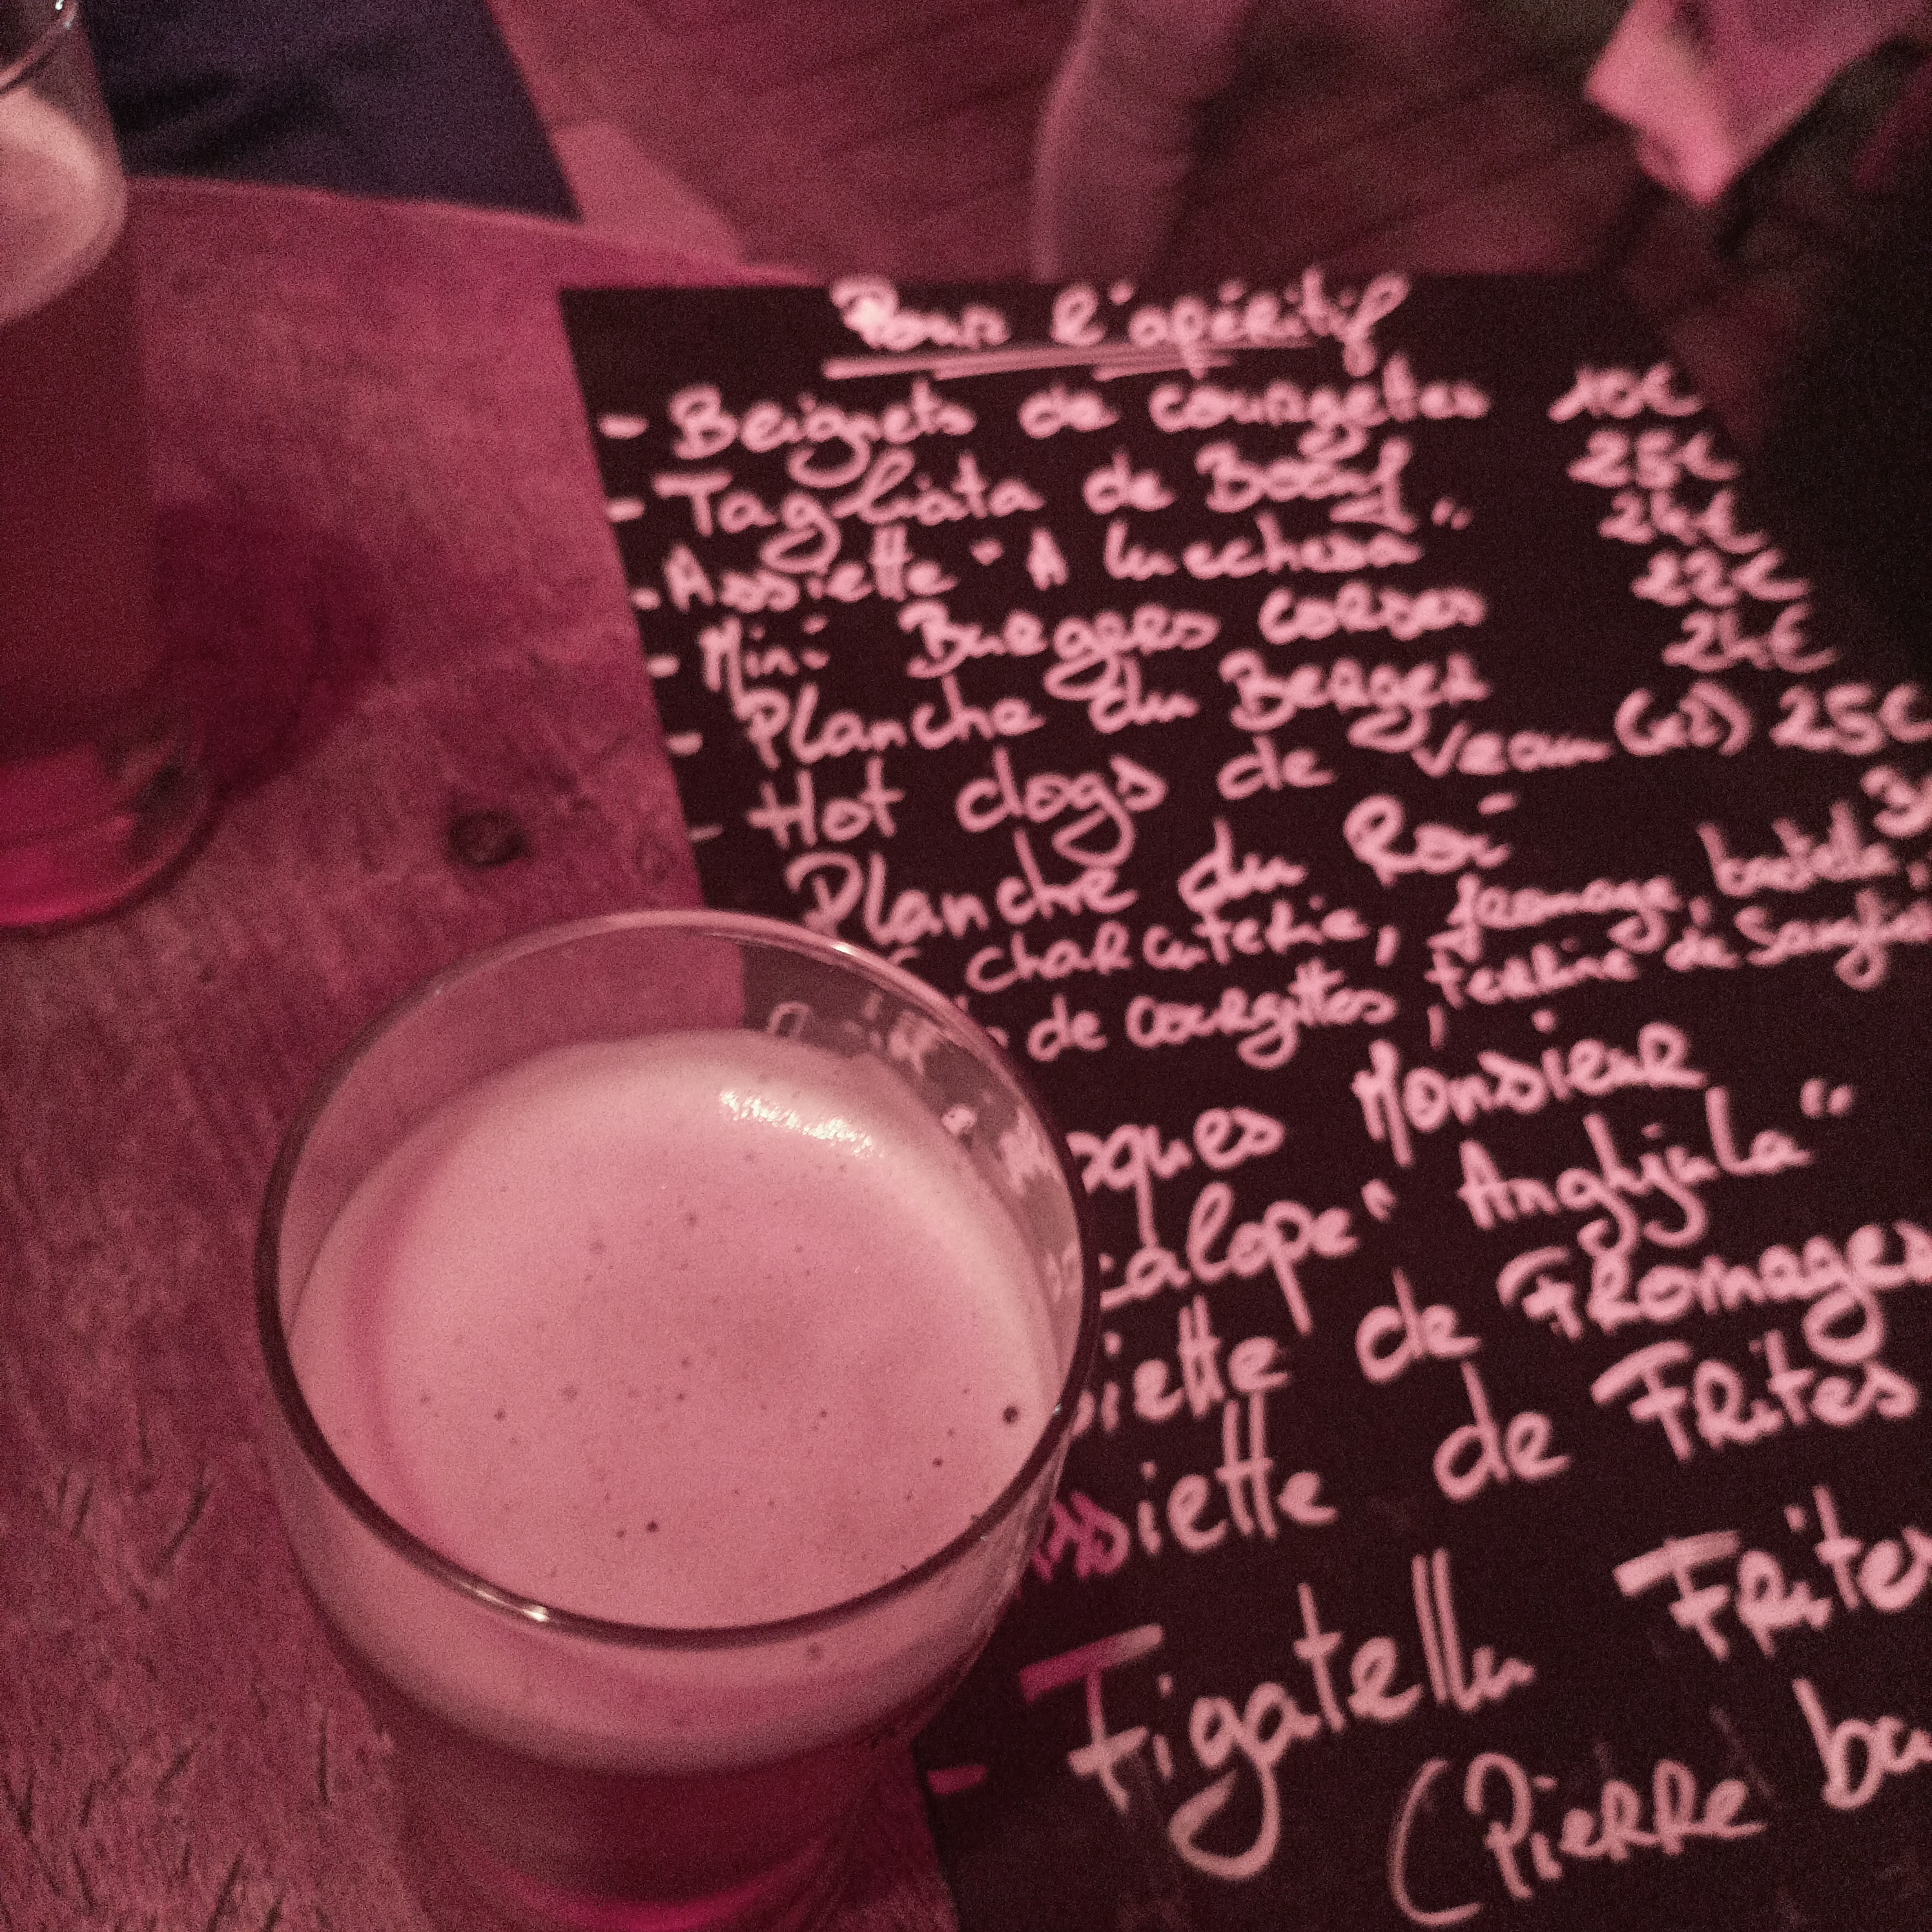 Pour l'apéritif
- Beignets de courgettes 10€
- Tagliata de Boeuf 25€
- Assiette "A Muchera" 24€
- Mini Burgers corses 22€
- Planche du Berger 24€
- Hot dogs de veau (x2) 25€
Planche du Roi 3
charcuterie, fromage, bastella,
de courgettes, terrine de Sanglier
Monsieur
"Anghjula"
de Fromages
ssiette de Frites
- Figatellu Frites
(Pierre